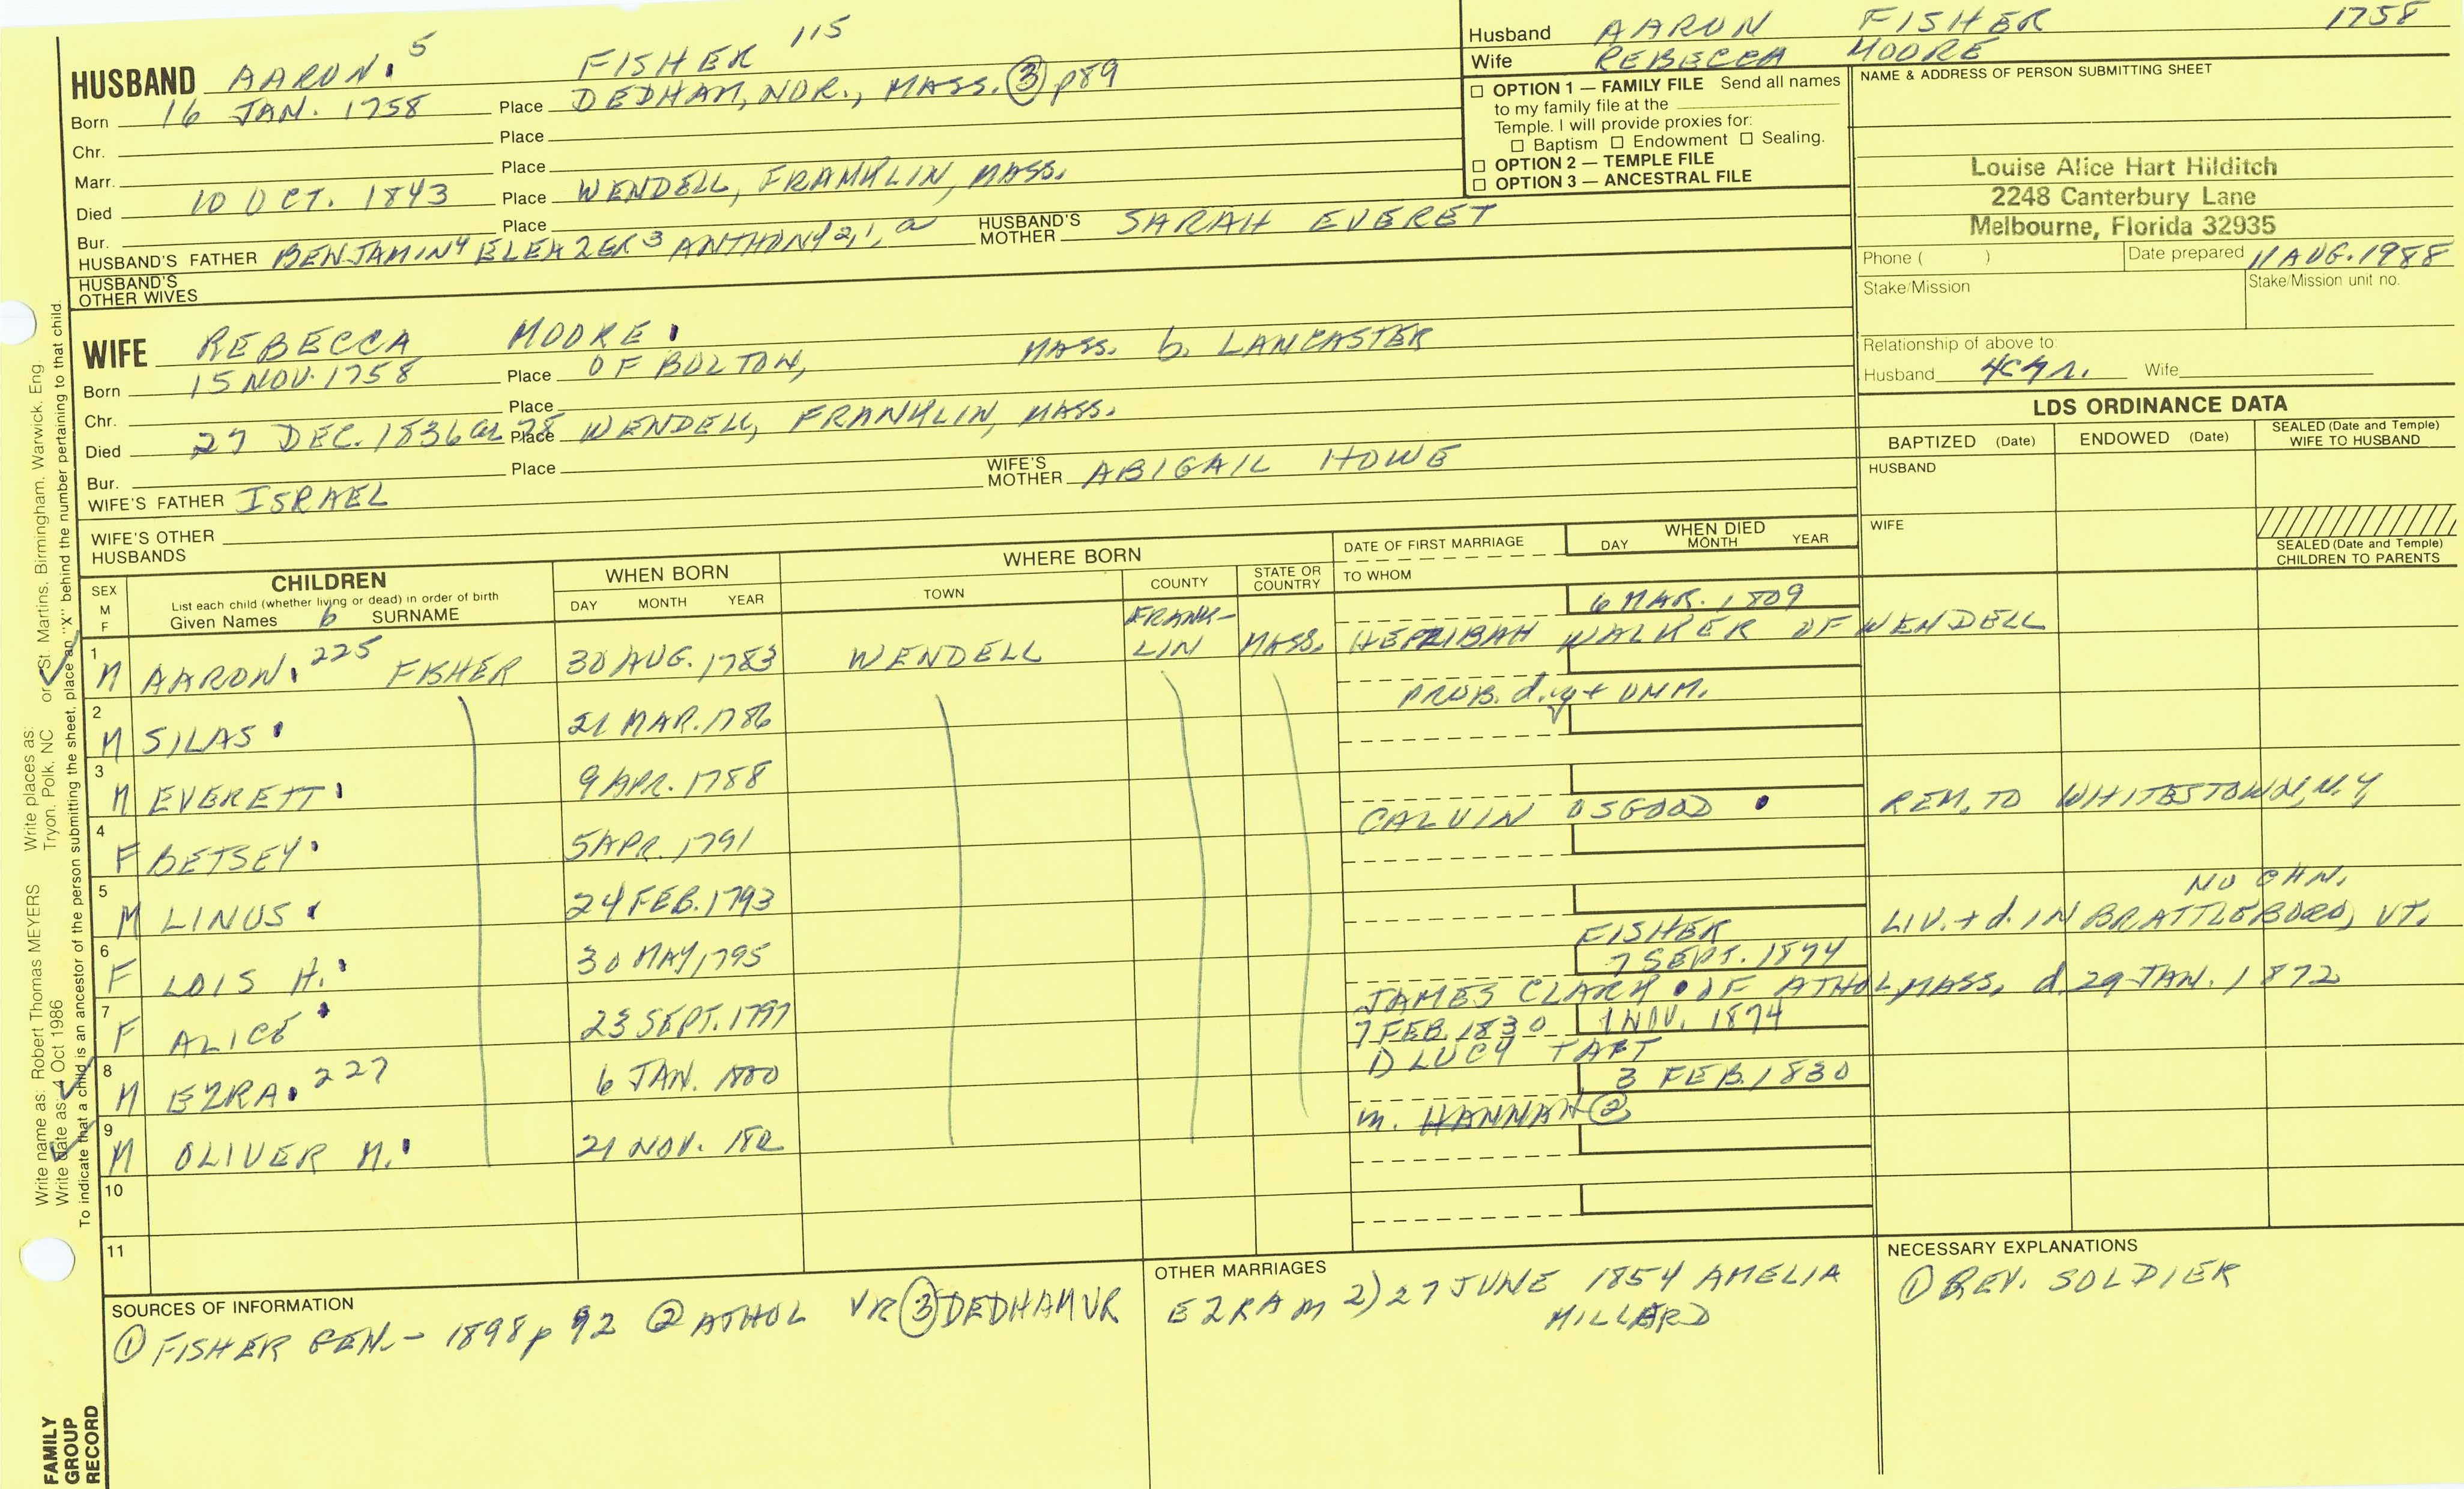 Husband AARON FISHER 1758
Wife REBECCA MOORE
HUSBAND AARON. 5 FISHER 115
Born 16 JAN. 1758 Place DEDHAM, NOR., MASS. ③ p89
Chr. Place
Marr. Place
Died 10 OCT. 1843 Place WENDELL, FRANKLIN, MASS.
Bur. Place
HUSBAND'S FATHER BENJAMIN 4 ELEAZER 3 ANTHONY 2,1, a HUSBAND'S MOTHER SARAH EVERET
HUSBAND'S OTHER WIVES
□ OPTION 1 — FAMILY FILE Send all names
to my family file at the
Temple. I will provide proxies for:
□ Baptism □ Endowment □ Sealing.
□ OPTION 2 — TEMPLE FILE
□ OPTION 3 — ANCESTRAL FILE
NAME & ADDRESS OF PERSON SUBMITTING SHEET
Louise Alice Hart Hilditch
2248 Canterbury Lane
Melbourne, Florida 32935
Phone ( ) Date prepared 11 AUG. 1988
Stake/Mission Stake/Mission unit no.
Relationship of above to:
Husband 4C4r. Wife
WIFE REBECCA MOORE.
Born 15 NOV. 1758 Place OF BOLTON, MASS. b. LANCASTER
Chr. Place
Died 27 DEC. 1836 ae 78 Place WENDELL, FRANKLIN, MASS.
Bur. Place
WIFE'S FATHER ISRAEL WIFE'S MOTHER ABIGAIL HOWE
WIFE'S OTHER HUSBANDS
LDS ORDINANCE DATA
BAPTIZED (Date) ENDOWED (Date) SEALED (Date and Temple) WIFE TO HUSBAND
HUSBAND
WIFE
SEALED (Date and Temple) CHILDREN TO PARENTS
SEX M F CHILDREN WHEN BORN WHERE BORN DATE OF FIRST MARRIAGE WHEN DIED
List each child (whether living or dead) in order of birth DAY MONTH YEAR TOWN COUNTY STATE OR COUNTRY TO WHOM DAY MONTH YEAR
Given Names b SURNAME
6 MAR. 1809
1 M AARON. 225 FISHER 30 AUG. 1783 WENDELL FRANK-LIN MASS. HEPZIBAH WALKER OF WENDELL
2 M SILAS. 21 MAR. 1786 PROB. d. y + UNM.
3 M EVERETT. 9 APR. 1788
4 F BETSEY. 5 APR. 1791 CALVIN OSGOOD . REM. TO WHITESTOWN, N.Y.
5 M LINUS. 24 FEB. 1793
NO CHN.
6 F LOIS H. 30 MAY, 1795 FISHER LIV. + d. IN BRATTLEBORO, VT.
7 SEPT. 1874
7 F ALICE 23 SEPT. 1797 JAMES CLARK . OF ATHOL, MASS. d. 29 JAN. 1872
7 FEB. 1830 1 NOV. 1874
8 M EZRA. 227 6 JAN. 1800 1) LUCY TAFT
3 FEB. 1830
9 M OLIVER M. 21 NOV. 1802 m. HANNAH ②
10
11
SOURCES OF INFORMATION
① FISHER GEN. - 1898 p 92 ② ATHOL VR ③ DEDHAM VR
OTHER MARRIAGES
EZRA M 2) 27 JUNE 1854 AMELIA
MILLARD
NECESSARY EXPLANATIONS
① REV. SOLDIER
Write name as: Robert Thomas MEYERS Write places as: Tryon, Polk, NC or St. Martins, Birmingham, Warwick, Eng.
Write date as: 4 Oct 1986
To indicate that a child is an ancestor of the person submitting the sheet, place an "X" behind the number pertaining to that child.
FAMILY
GROUP
RECORD